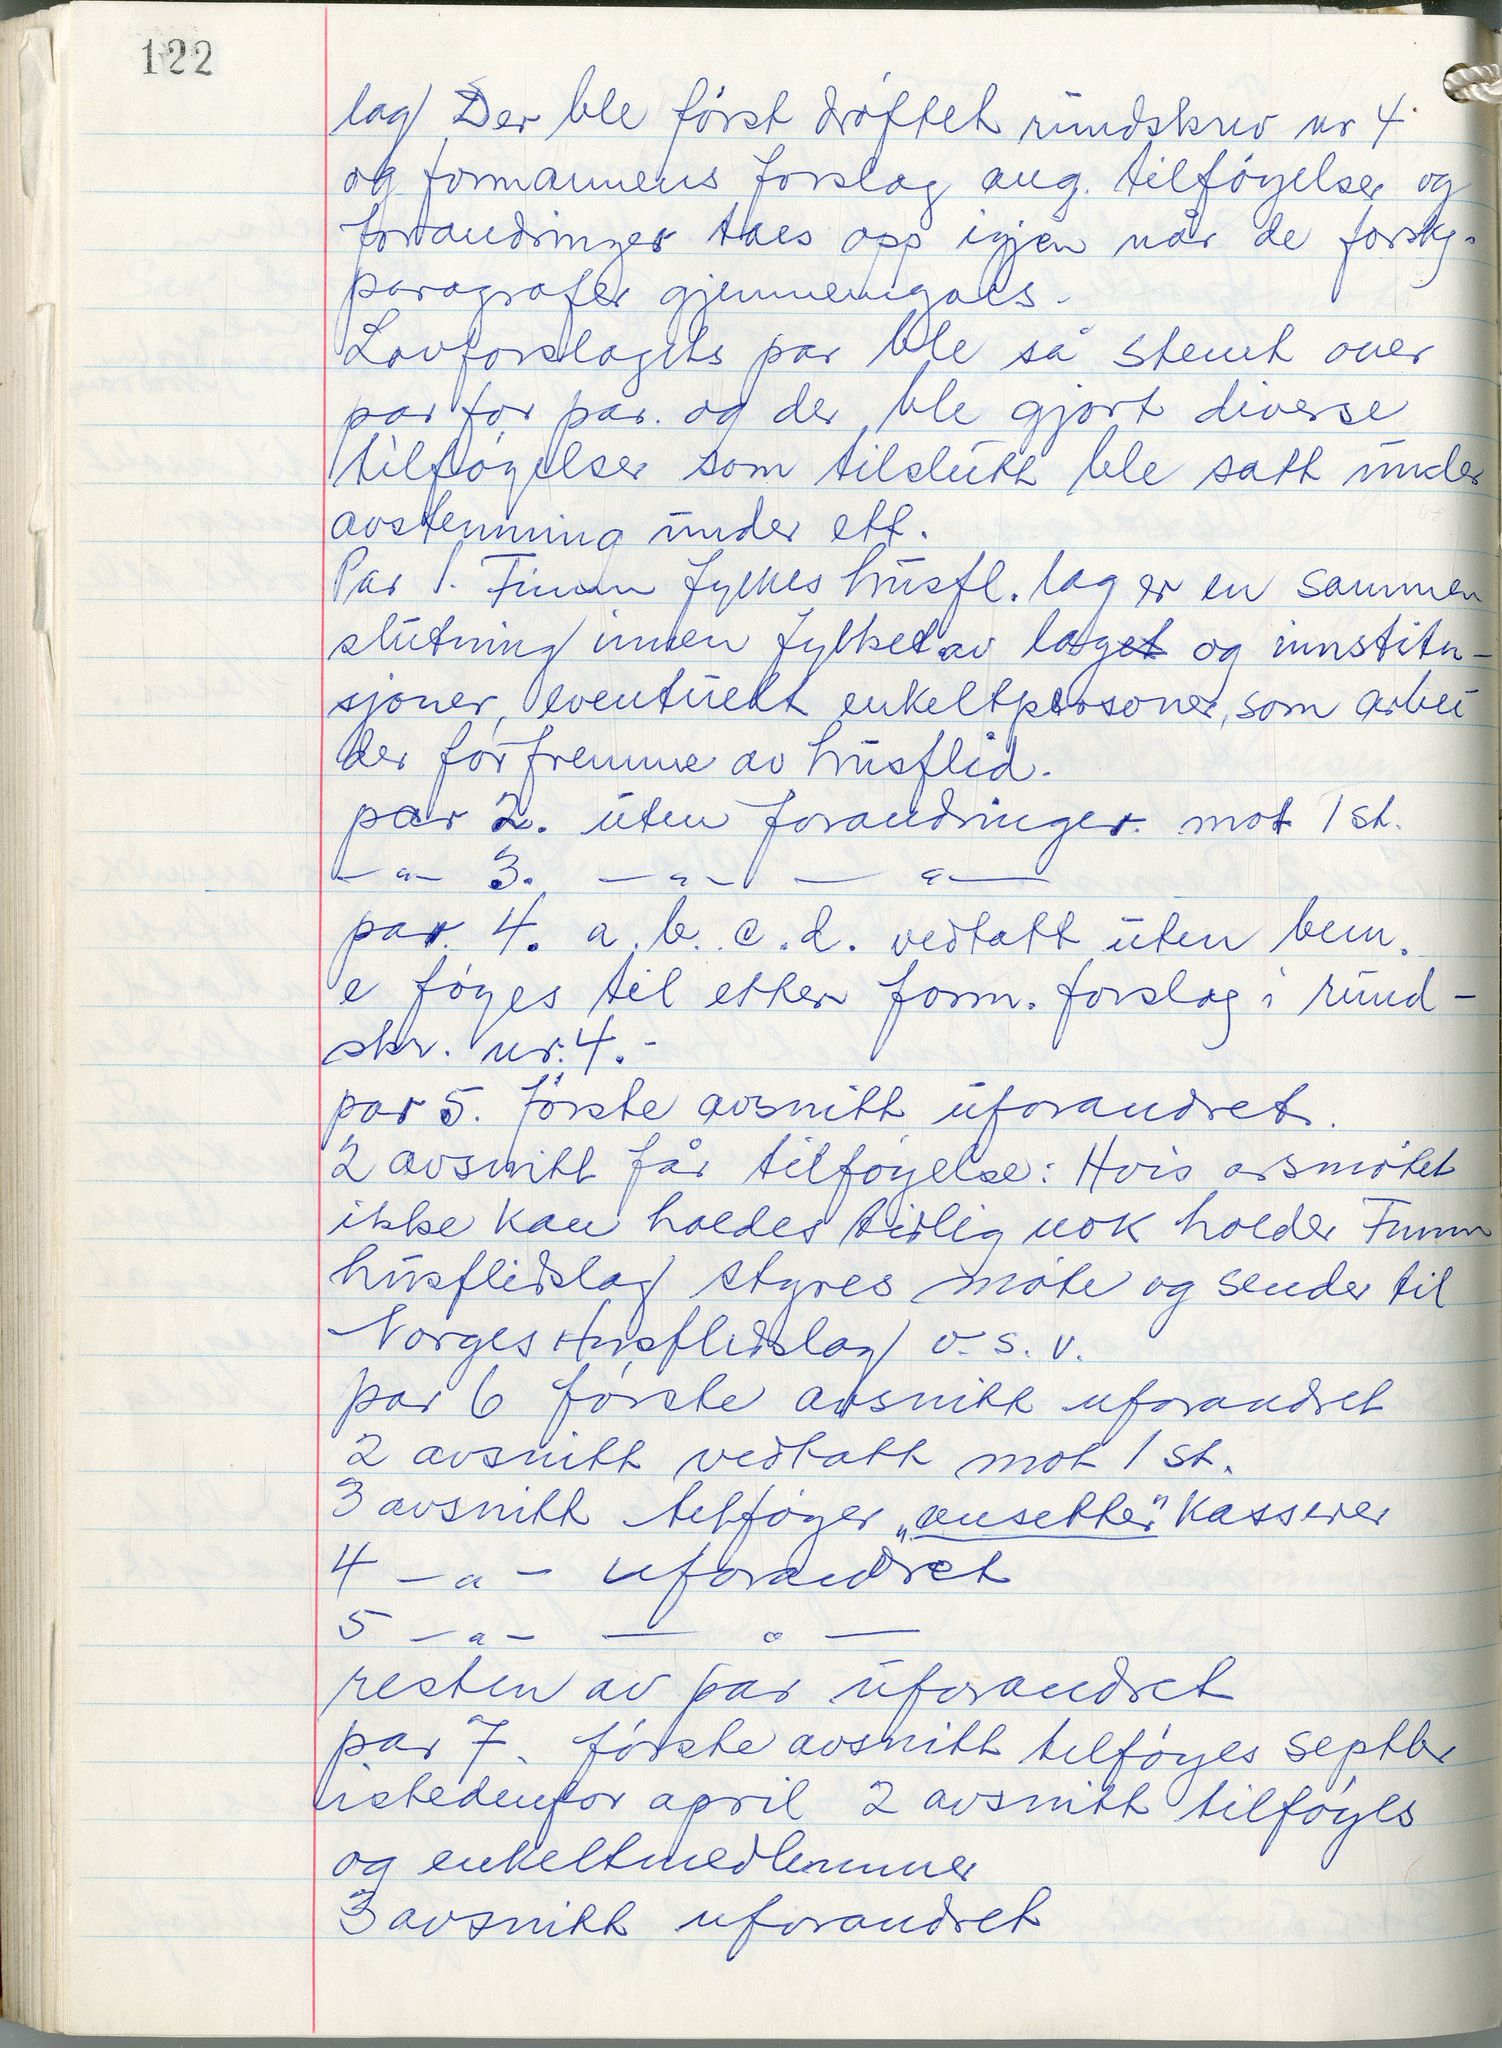 122
lag/ Der ble först dröftet rundskriv nr 4
og formannens forslag ang. tilföyelser og
forandringer taes opp igjen når de forskj.
paragrafer gjennemgaes.
Lovforslagets par ble så stemt over
par for par. og der ble gjort diverse
tilföyelser som tilslutt ble satt under
avstemning under ett.
Par 1. Finnm fylkes husfl. lag er en sammen
slutning innen fylket av laget og innstitu-
sjoner, eventuelt enkeltpersoner, som arbei
der for fremme av husflid.
par 2. uten forandringer. mot 1 st.
— " — 3. — " — — " —
par. 4. a. b. c. d. vedtatt uten bem.
e föyes til etter form. forslag i rund-
skr. nr. 4.-
par 5. förste avsnitt uforandret.
2 avsnitt får tilföyelse: Hvis årsmötet
ikke kan holdes tidlig nok holder Finnm
husflidslag styres möte og sender til
Norges Husflidslag o. s. v.
par 6 förste avsnitt uforandret
2 avsnitt vedtatt mot 1 st.
3 avsnitt tilföyer „ansetter" Kasserer
4 — " — uforandret
5 — " — — " —
resten av par uforandret
par 7. förste avsnitt tilföyes septbr
istedenfor april 2 avsnitt tilföyes
og enkeltmedlemmer
3 avsnitt uforandret